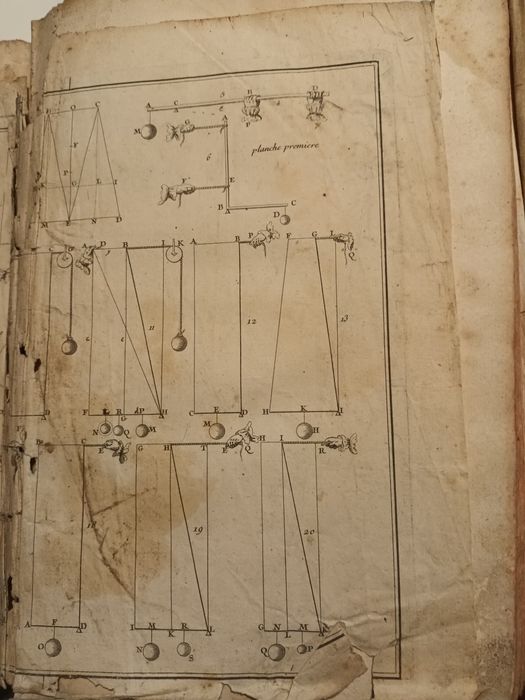 O C
F
P
G L I
M E N D
A C 5 B D
M P
G A
planche premiere
6
F E
B C
D
A D B I K A B P F G L
Q
11 12 13
F R P H C E D H K I
N Q M M H
C E G H T E Q H I R
18 19 20
A F D I M R L G N M
K L
O N S Q P